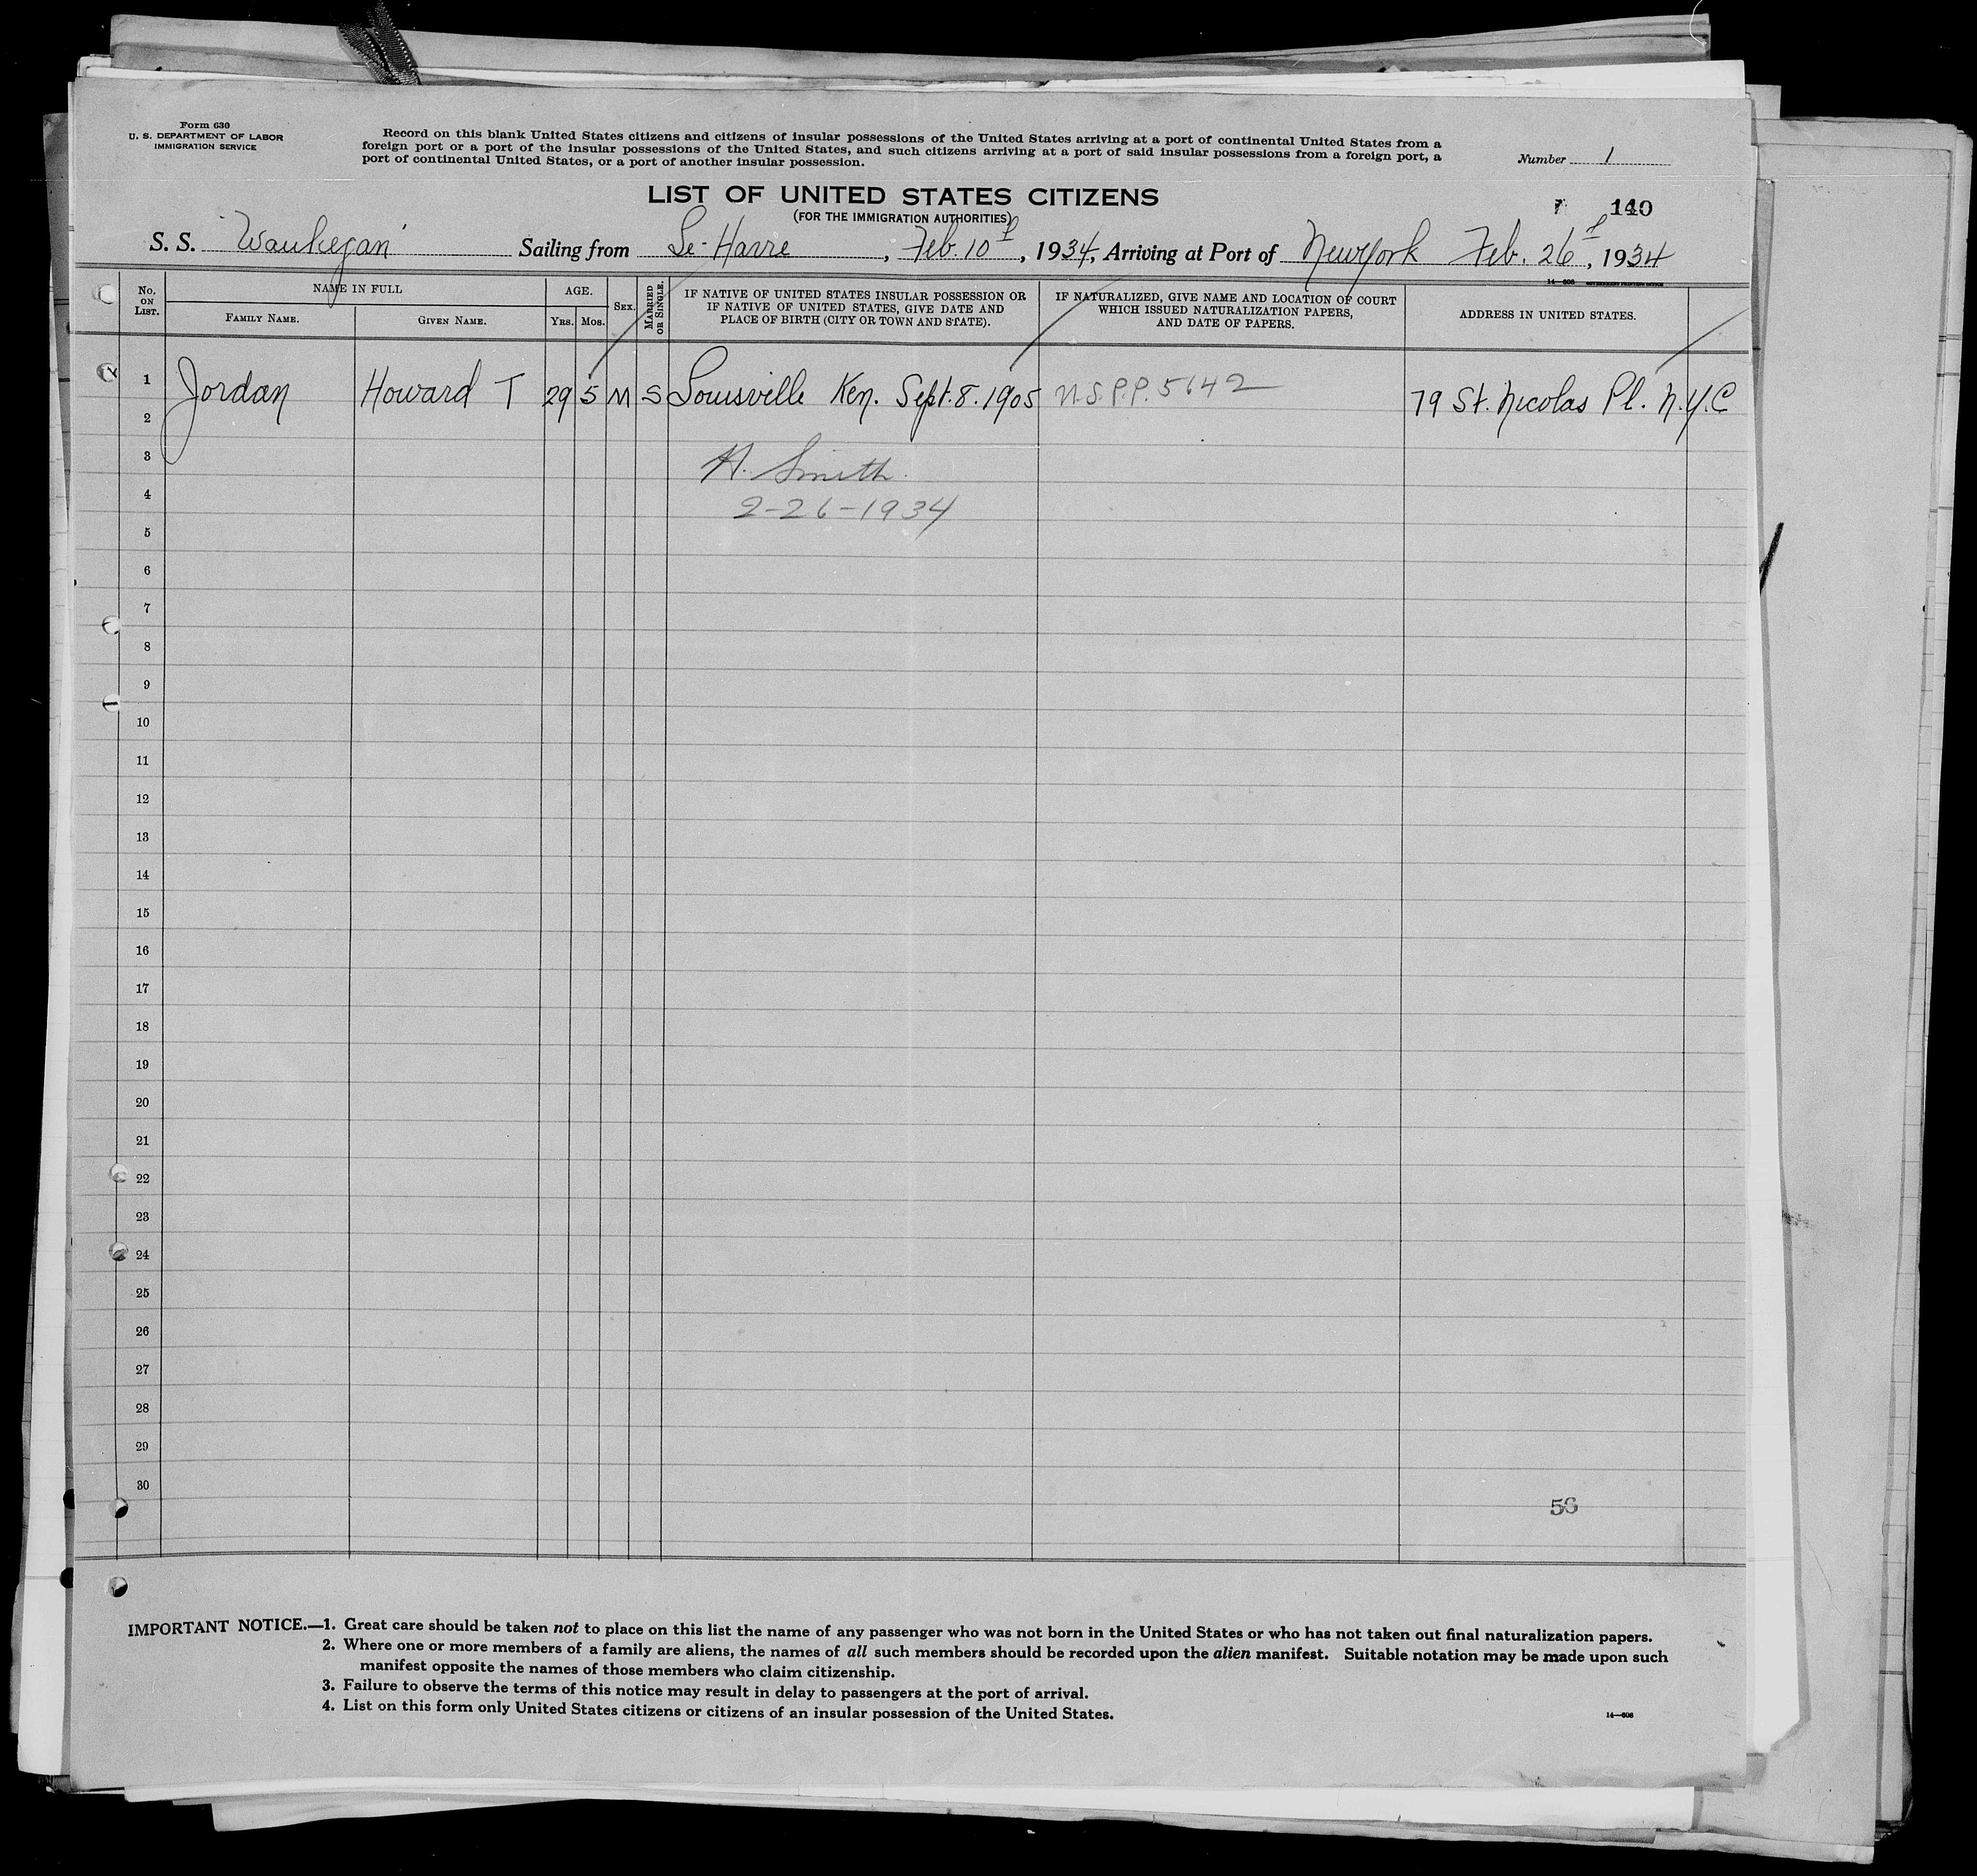 Form 630
U. S. DEPARTMENT OF LABOR
IMMIGRATION SERVICE
Record on this blank United States citizens and citizens of insular possessions of the United States arriving at a port of continental United States from a
foreign port or a port of the insular possessions of the United States, and such citizens arriving at a port of said insular possessions from a foreign port, a
port of continental United States, or a port of another insular possession.
Number 1
LIST OF UNITED STATES CITIZENS
(FOR THE IMMIGRATION AUTHORITIES)
140
S. S. "Waukegan" Sailing from Le-Havre, Feb. 10, 1934, Arriving at Port of New York Feb. 26, 1934
14-608
No. ON LIST.
NAME IN FULL
FAMILY NAME.
GIVEN NAME.
AGE.
YRS.
MOS.
SEX.
MARRIED OR SINGLE.
IF NATIVE OF UNITED STATES INSULAR POSSESSION OR
IF NATIVE OF UNITED STATES, GIVE DATE AND
PLACE OF BIRTH (CITY OR TOWN AND STATE).
IF NATURALIZED, GIVE NAME AND LOCATION OF COURT
WHICH ISSUED NATURALIZATION PAPERS,
AND DATE OF PAPERS.
ADDRESS IN UNITED STATES.
1 Jordan Howard T 29 5 M S Louisville Ken. Sept. 8. 1905 U.S.P.P. 5642 79 St. Nicolas Pl. N.Y.C
2
3 H. Smith.
4 2-26-1934
5
6
7
8
9
10
11
12
13
14
15
16
17
18
19
20
21
22
23
24
25
26
27
28
29
30
IMPORTANT NOTICE.—1. Great care should be taken not to place on this list the name of any passenger who was not born in the United States or who has not taken out final naturalization papers.
2. Where one or more members of a family are aliens, the names of all such members should be recorded upon the alien manifest. Suitable notation may be made upon such
manifest opposite the names of those members who claim citizenship.
3. Failure to observe the terms of this notice may result in delay to passengers at the port of arrival.
4. List on this form only United States citizens or citizens of an insular possession of the United States.
14-608